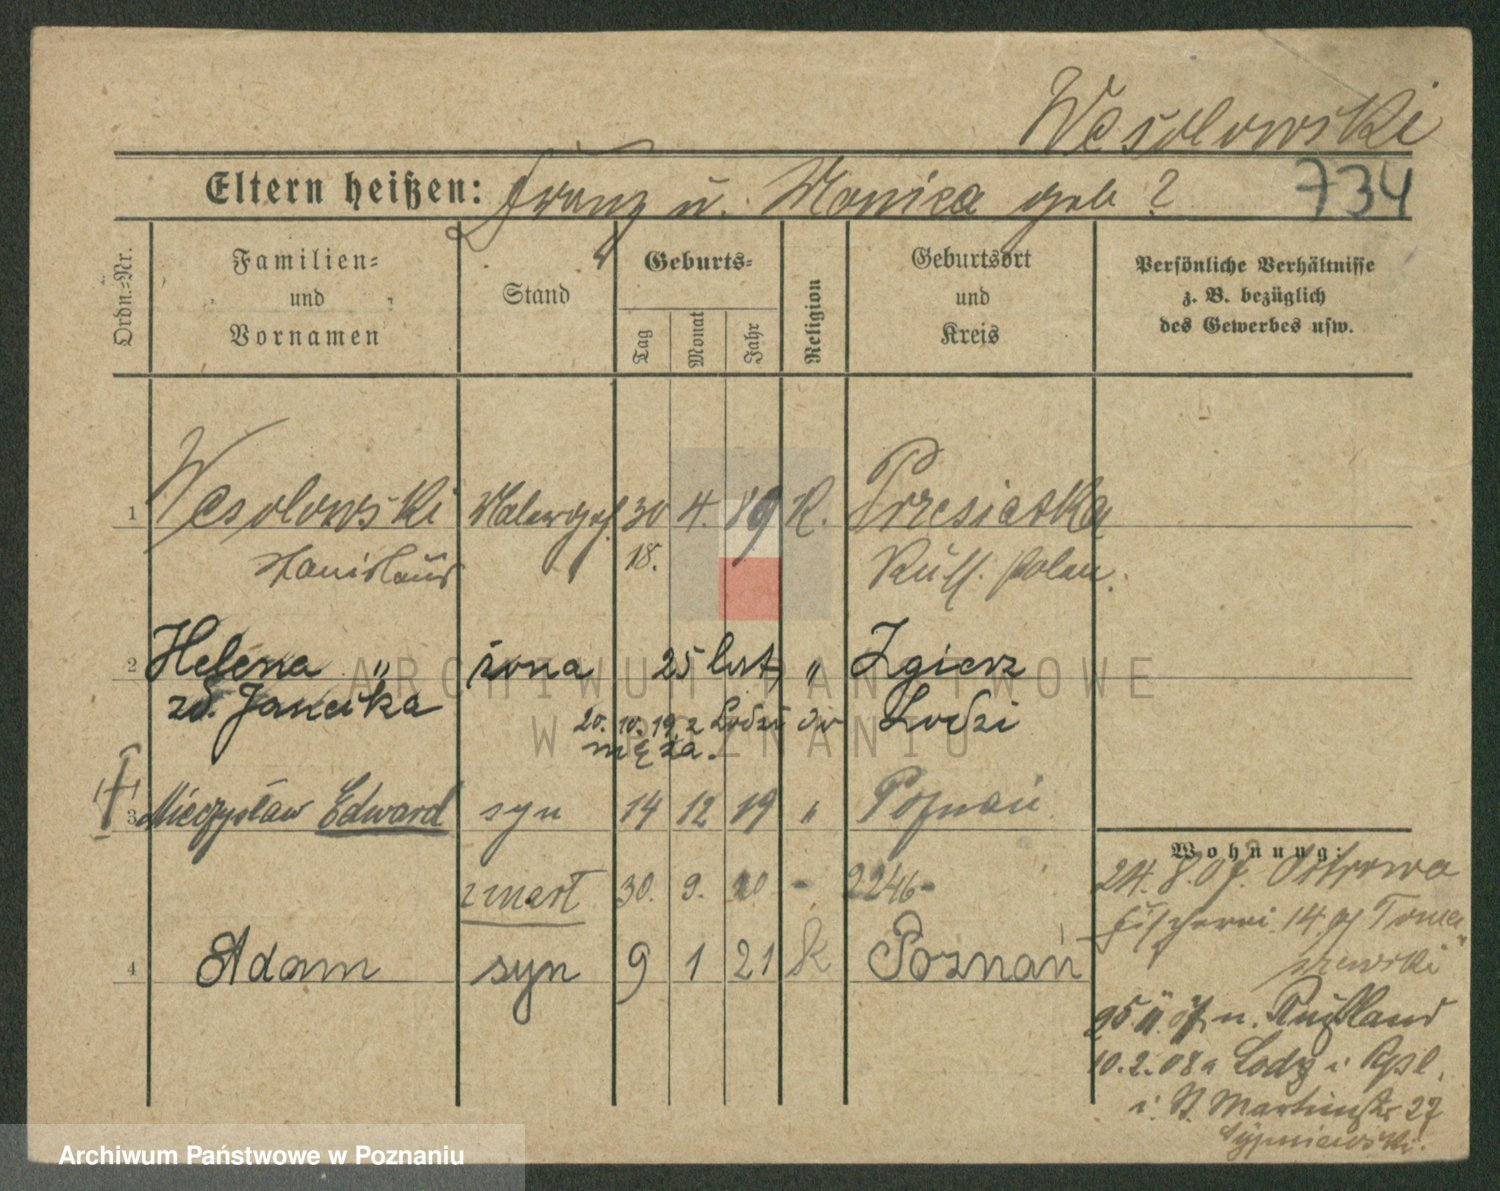 Wesolowski
Eltern heißen: Franz u. Monica geb ? 734
Ordn.=Nr.
Familien=
und
Vornamen
Stand
Geburts=
Tag
Monat
Jahr
Religion
Geburtsort
und
Kreis
Persönliche Verhältnisse
z. B. bezüglich
des Gewerbes usw.
1 Wesolowski Malergeh. 30 4. 89 K. Przesiatka
Stanislaus 18. Russ. Polen.
2 Helena " żona 25 lat " Zgierz
zd. Janecka 20. 10. 19 z Lodzi do Lodzi
męża.
3 Mieczysław Edward syn 14 12 19 " Poznań
zmarł 30. 9. 20 - 2246-
4 Adam syn 9 1 21 k Poznań
Wohnung:
24. 8. 07. Ostrowo
Fischerei 14 bj Toma
szewski
25. 11. 07 n. Rußland
10. 2. 08 a Lodz i
i. St Martinstr 27
Sypniewski.
ARCHIWUM PAŃSTWOWE
W POZNANIU
Archiwum Państwowe w Poznaniu